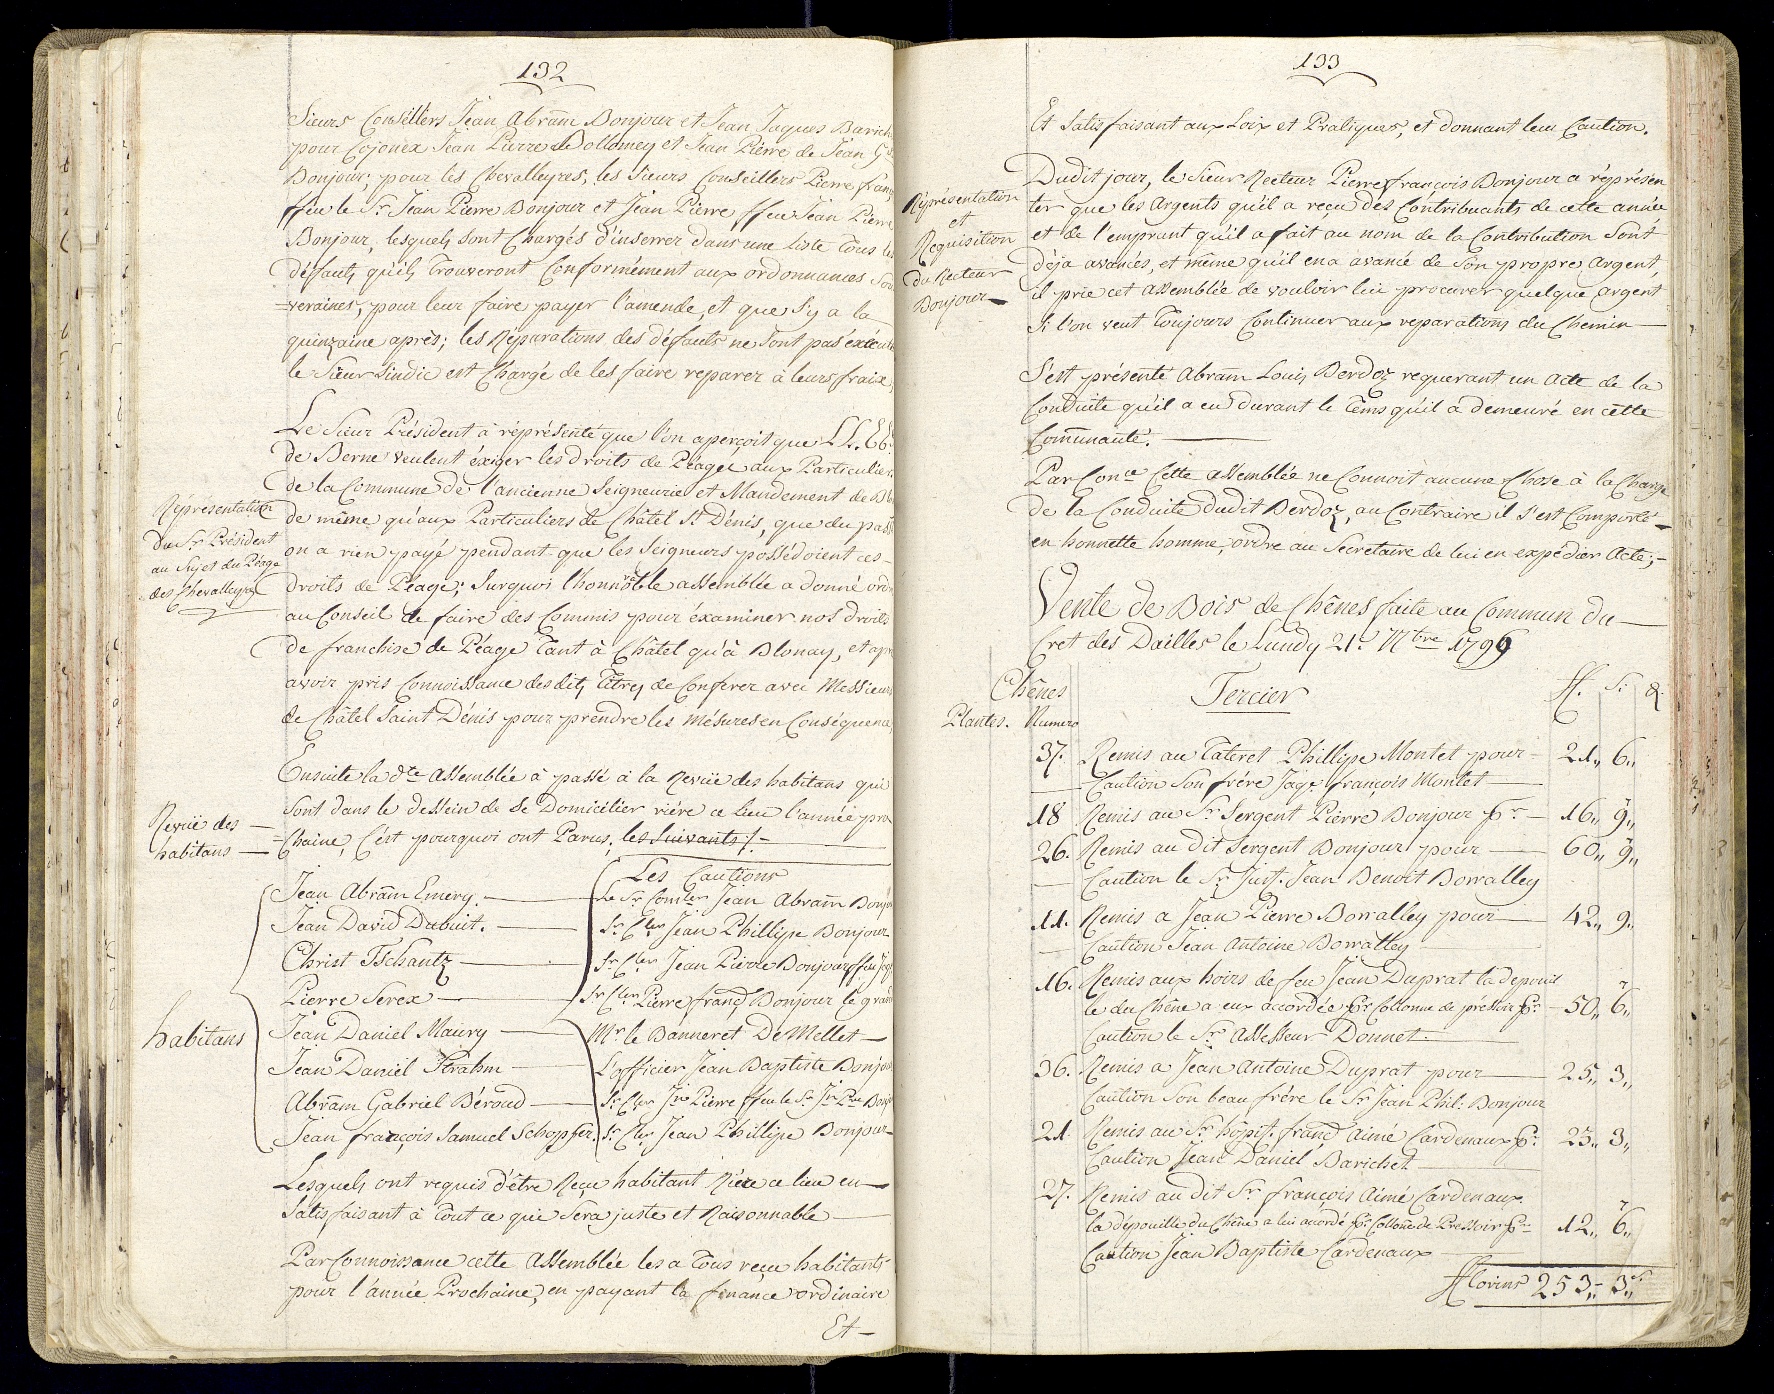 132
Sieurs Conseillers Jean Abram Bonjour et Jean Jaques Barich
pour Cojonex Jean Pierre Dollomey et Jean Pierre de Jean
Bonjour; pour les Chevalleyres, les Sieurs Conseillers Pierre franç
ffeu le Sr. Jean Pierre Bonjour et Jean Pierre ffeu Jean Pierre
Bonjour, lesquels sont Chargés d'inserrer dans une Liste Tous les
défauts, qu'ils Trouveront Conformément aux ordonnances Sou
=veraines, pour leur faire payer l'amende, et que s'y a la
quinzaine après; les Réparations des défauts ne sont pas éxécuté
le Sieur Sindic est Chargé de les faire reparer à leurs fraix,
Le Sieur Président à réprésenté que l'on aperçoit que LL.EE.
de Berne veulent éxiger les droits de Péage aux Particulier
de la Commune de l'ancienne Seigneurie et Mandement de Bl
Réprésentation
du Sr. Président
au Sujet du Péage
des Chevalleyres
de même qu'aux Particuliers de Châtel St. Dénis, que du passé
on a rien payé pendant que les Seigneurs possédoient ces
droits de Péage; Surquoi l'honnorable assemblée a donné ord
au Conseil de faire des Commis pour éxaminer nos droits
de franchise de Péage Tant à Châtel qu'à Blonay, et apr
avoir pris Connoissance desdits Titres de Conferer avec Messieurs
de Châtel Saint Dénis pour prendre les mésures en Conséquence
Revüe des
habitans
Ensuite la dte. assemblée à passé à la Revüe des habitans qui
sont dans le dessein de se Domicilier riére ce lieu l'année pro
=chaine, C'ést pourquoi ont Parus, les Suivants /.
Les Cautions
habitans
Jean Abram Emery. — Le Sr. Comler Jean Abram Bonjo
Jean David Dubuit. — Sr. Cler Jean Phillipe Bonjour
Christ Tschantz — Sr. Cler Jean Pierre Bonjour ffeu Jaq
Pierre Serex — Sr. Cler Pierre franç. Bonjour le grand
Jean Daniel Maury — Mr. le Banneret De Mellet
Jean Daniel Strahm — L'officier Jean Baptiste Bonjour
Abram Gabriel Béroud — Sr. Cler Jn Pierre ffeu le Sr. Jn Pre Bonjo
Jean françois Samuel Schopffer. Sr. Cler Jean Phillipe Bonjour
Lesquels ont requis d'être Reçu habitant Riére ce lieu en
satisfaisant à Tout ce qui sera juste et Raisonnable
Par Connoissance cette Assemblée les a Tous reçu habitants
pour l'année Prochaine, en payant la finance ordinaire
Et
133
Et Satisfaisant aux Loix et Pratiques, et donnant leur Caution.
Réprésentation
et
Requisition
du Recteur
Bonjour
Dudit jour, le Sieur Recteur Pierre françois Bonjour a réprésen
ter que les Argents qu'il a reçu des Contribuants de cette année
et de l'emprunt qu'il a fait au nom de la Contribution sont
déja avancés, et même qu'il en a avancé de Son propre argent,
il prie cet assemblée de vouloir lui procurer quelque argent
Si l'on veut Toujours Continuer aux reparations du Chemin
S'est présenté Abram Louis Berdoz requerant un Acte de la
Conduite qu'il a eu durant le Tems qu'il a demeuré en cétte
Communauté.
Par Conce Cette assemblée ne Connoit aucune Chose à la Charge
de la Conduite dudit Berdoz, au Contraire il s'est Comporté
en honnette homme, ordre au Secretaire de lui en expédier Acte;
Vente de Bois de Chênes faite au Commun du
Cret des Dailles le Lundy 21. Nbre 1796
Chênes Tercier ff. S: d.
Plantes. Numero
37. Remis au Tateret Phillipe Montet pour 21,, 6,,
Caution Son frére Jaq. françois Montet
18 Remis au Sr. Sergent Pierre Bonjour pr. 16,, 9,,
26. Remis au dit Sergent Bonjour pour 60,, 9,,
Caution le Sr. Just. Jean Benoit Borralley
11. Remis a Jean Pierre Borralley pour 42,, 9,,
Caution Jean Antoine Borralley
16. Remis aux hoirs de feu Jean Duprat la depouil
le du Chêne a eux accordée pr. Collonne de préssoir pr. 50,, 6,,
Caution le Sr. Assesseur Donnet.
36. Remis a Jean Antoine Duprat pour 25,, 3,,
Caution Son beau frére le Sr. Jean Phil: Bonjour
21. Remis au Sr. hôpit. franç. Aimé Cardenaux pr. 23,, 3,,
Caution Jean Daniel Barichet
27. Remis au dit Sr. françois Aimé Cardenaux
la dépouille du Chêne a lui accordé pr. Collone de Pressoir pr. 12,, 6,,
Caution Jean Baptiste Cardenaux
fflorins 253,, 3,,